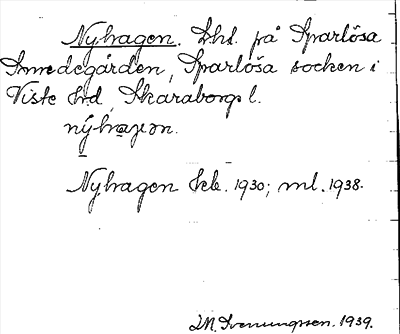 Nyhagen. Lhd. på Sparlösa
Smedegården, Sparlösa socken i
Viste hd, Skaraborgs l.
nýhaɡən.
Nyhagen kb. 1930; ml. 1938.
M. Svenungsson. 1939.